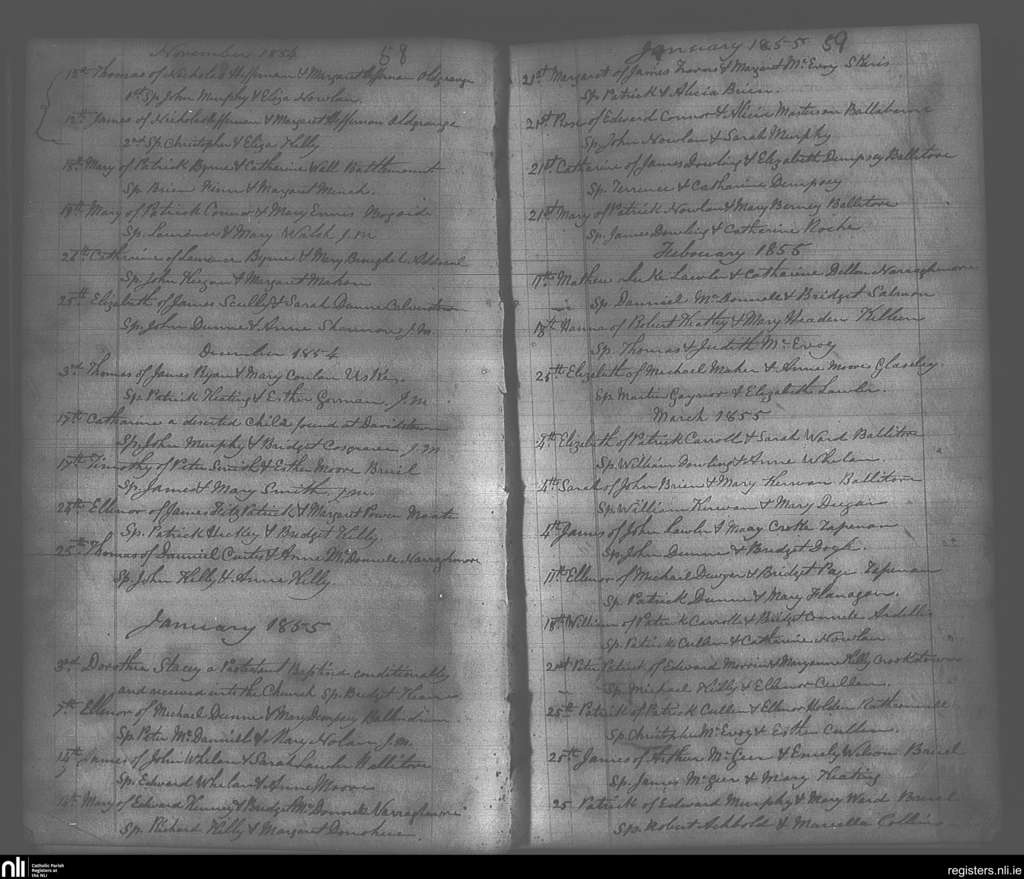 November 1854 58
18th Thomas of Nicholas Heffernan & Margaret Heffernan Oldgrange
1st Sp. John Murphy & Eliza Nowlan
18th James of Nicholas Heffernan & Margaret Heffernan Oldgrange
2nd Sp. Christopher & Eliza Kelly
18th Mary of Patrick Byrne & Catherine Wall
Sp. Brien & Margaret
19th Mary of Patrick Connor & Mary Ennis
Sp. Laurence & Mary Walsh J.M
Catherine of Laurence Byrne & Mary
Sp. John & Margaret Mahon
25th Elizabeth of James Scully & Sarah Dunne
Sp. John Dunne & Anne Shannon J.M.
December 1854
3rd Thomas of James Ryan & Mary Conlan
Sp. Patrick Keating & Esther Gorman J.M
17th Catharine a deserted Child found at Davidstown
Sp. John Murphy & Bridget Cosgrave J.M
17th Timothy of Peter Smith & Esther Moore Breail
Sp. James & Mary Smith J.M.
24th Ellenor of James FitzPatrick & Margaret Power Moate
Sp. Patrick Hickey & Bridget Kelly
25th Thomas of Danniel & Anne McDonnell Narraghmore
Sp. John Kelly & Anne Kelly
January 1855
3rd Dorothea Stacey a Protestant Baptized conditionally
and received into the Church Sp. Bridget
7th Ellenor of Michael Dunne & Mary Dempsey
Sp. Peter McDanniel & Mary Nolan J.M.
14th James of John Whelan & Sarah Lawlor Ballitore
Sp. Edward Whelan & Anne Moore
Mary of Edward & Bridget McDonnell Narraghmore
Sp. Richard Kelly & Margaret Donohue
January 1855 59
21st Margaret of James & Margaret McEvoy Skeris
Sp. Patrick & Alicia Brien
21st Rose of Edward Connor & Alicia Masterson
Sp. John Nowlan & Sarah Murphy
21st Catharine of James Dowling & Elizabeth Dempsey Ballitore
Sp. Terrence & Catharine Dempsey
21st Mary of Patrick Nowlan & Mary Berney Ballitore
Sp. James Dowling & Catherine Roche
Febouary 1855
11th Mathew Luke Lawler & Catharine Dillon Narraghmore
Sp. Danniel McDonnell & Bridget Salmon
18th Hanna of Robert Heatley & Mary Headen Killeen
Sp. Thomas & Judith McEvoy
25th Elizabeth of Michael Maher & Anne Moore Glaseley
Sp. Martin Gaynor & Elizabeth Lawler
March 1855
4th Elizabeth of Patrick Carroll & Sarah Ward Ballitore
Sp. William Dowling & Anne Whelan
4th Sarah of John Brien & Mary Kerwan Ballitore
Sp. William Kirwan & Mary Dugan
4th James of John Lawler & Mary Croke
Sp. John Dunne & Bridget Doyle
11th Ellenor of Michael Dwyer & Bridget Page
Sp. Patrick Dunne & Mary Flanagan
18th William of Patrick Carroll & Bridget Connell
Sp. Patrick Cullen & Catherine Nowlan
Peter Patrick of Edward Morrin & Maryanne Kelly Crookstown
Sp. Michael Kelly & Ellenor Cullen
25th Patrick of Patrick Cullen & Ellenor Holden
Sp. Christopher McEvoy & Esther Cullen
25th James of Arthur McGeer & Emily Wilson Breail
Sp. James McGeer & Mary Keating
25 Patrick of Edward Murphy & Mary Ward Breail
Sp. Robert Archbold & Marcella Collins
nli
Catholic Parish
Registers at
the NLI
registers.nli.ie